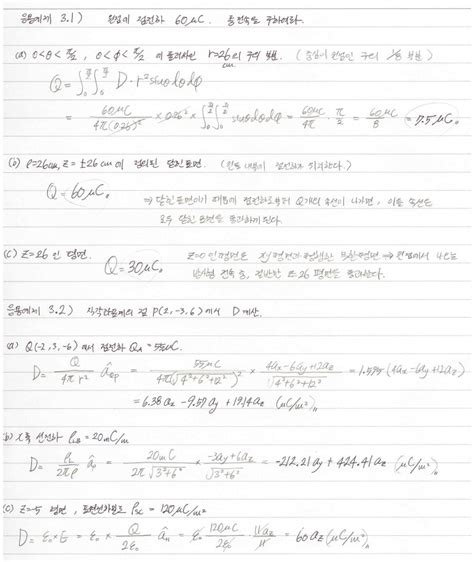 응용예제 3.1) 원점에 점전하 60μC. 총전속을 구하여라.
(a) 0<θ<π/2, 0<φ<π/2 에 둘러싸인 r=26cm 구의 부분. (중심이 원점인 구의 1/8 부분)
Q = ∫₀^(π/2) ∫₀^(π/2) D · r² sinθ dθ dφ
= 60μC / 4π(0.26)² × 0.26² × ∫₀^(π/2) ∫₀^(π/2) sinθ dθ dφ = 60μC/4π · π/2 = 60μC/8 = 7.5μC.
(b) ρ=26cm, z=±26cm 에 정의된 닫힌표면.
Q = 60μC.
⇒ 닫힌 표면이기 때문에 점전하로부터 Q개의 속선이 나가면, 이들 속선은
모두 닫힌 표면을 통과하게 된다.
(c) z=26 인 평면.
Q = 30μC.
z=0 인 평면은 xy평면과 평행한 무한평면 → 원점에서 나오는
전속 중, 절반만 z=26 평면을 통과한다.
응용예제 3.2) 직각좌표계의 점 P(2,-3,6) 에서 D 계산.
(a) Q(-2,3,-6) 에서 점전하 Q_A = 55mC.
D = Q/4πr² â_QP = 55mC / 4π(√4²+6²+12²)² × (4ax-6ay+12az)/√4²+6²+12² = 1.595 (4ax-6ay+12az)
= 6.38ax - 9.57ay + 19.14az (μC/m²)
(b) x축 선전하 ρ_LB = 20mC/m
D = ρ_L/2πρ âρ = 20mC / 2π√3²+6² × (-3ay+6az)/√3²+6² = -212.21ay + 424.41az (μC/m²)
(c) z=-5 평면, 표면전하밀도 ρ_SC = 120μC/m²
D = ε₀×E = ε₀ × Q/2ε₀ â_n = ε₀ · 120μC/2ε₀ · 11az/11 = 60az (μC/m²)